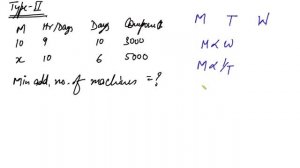 Type-II
M Hr/Days Days Output
10 9 10 3000
x 10 6 5000
Min add. no. of machines = ?
M T W
M ∝ W
M ∝ 1/T